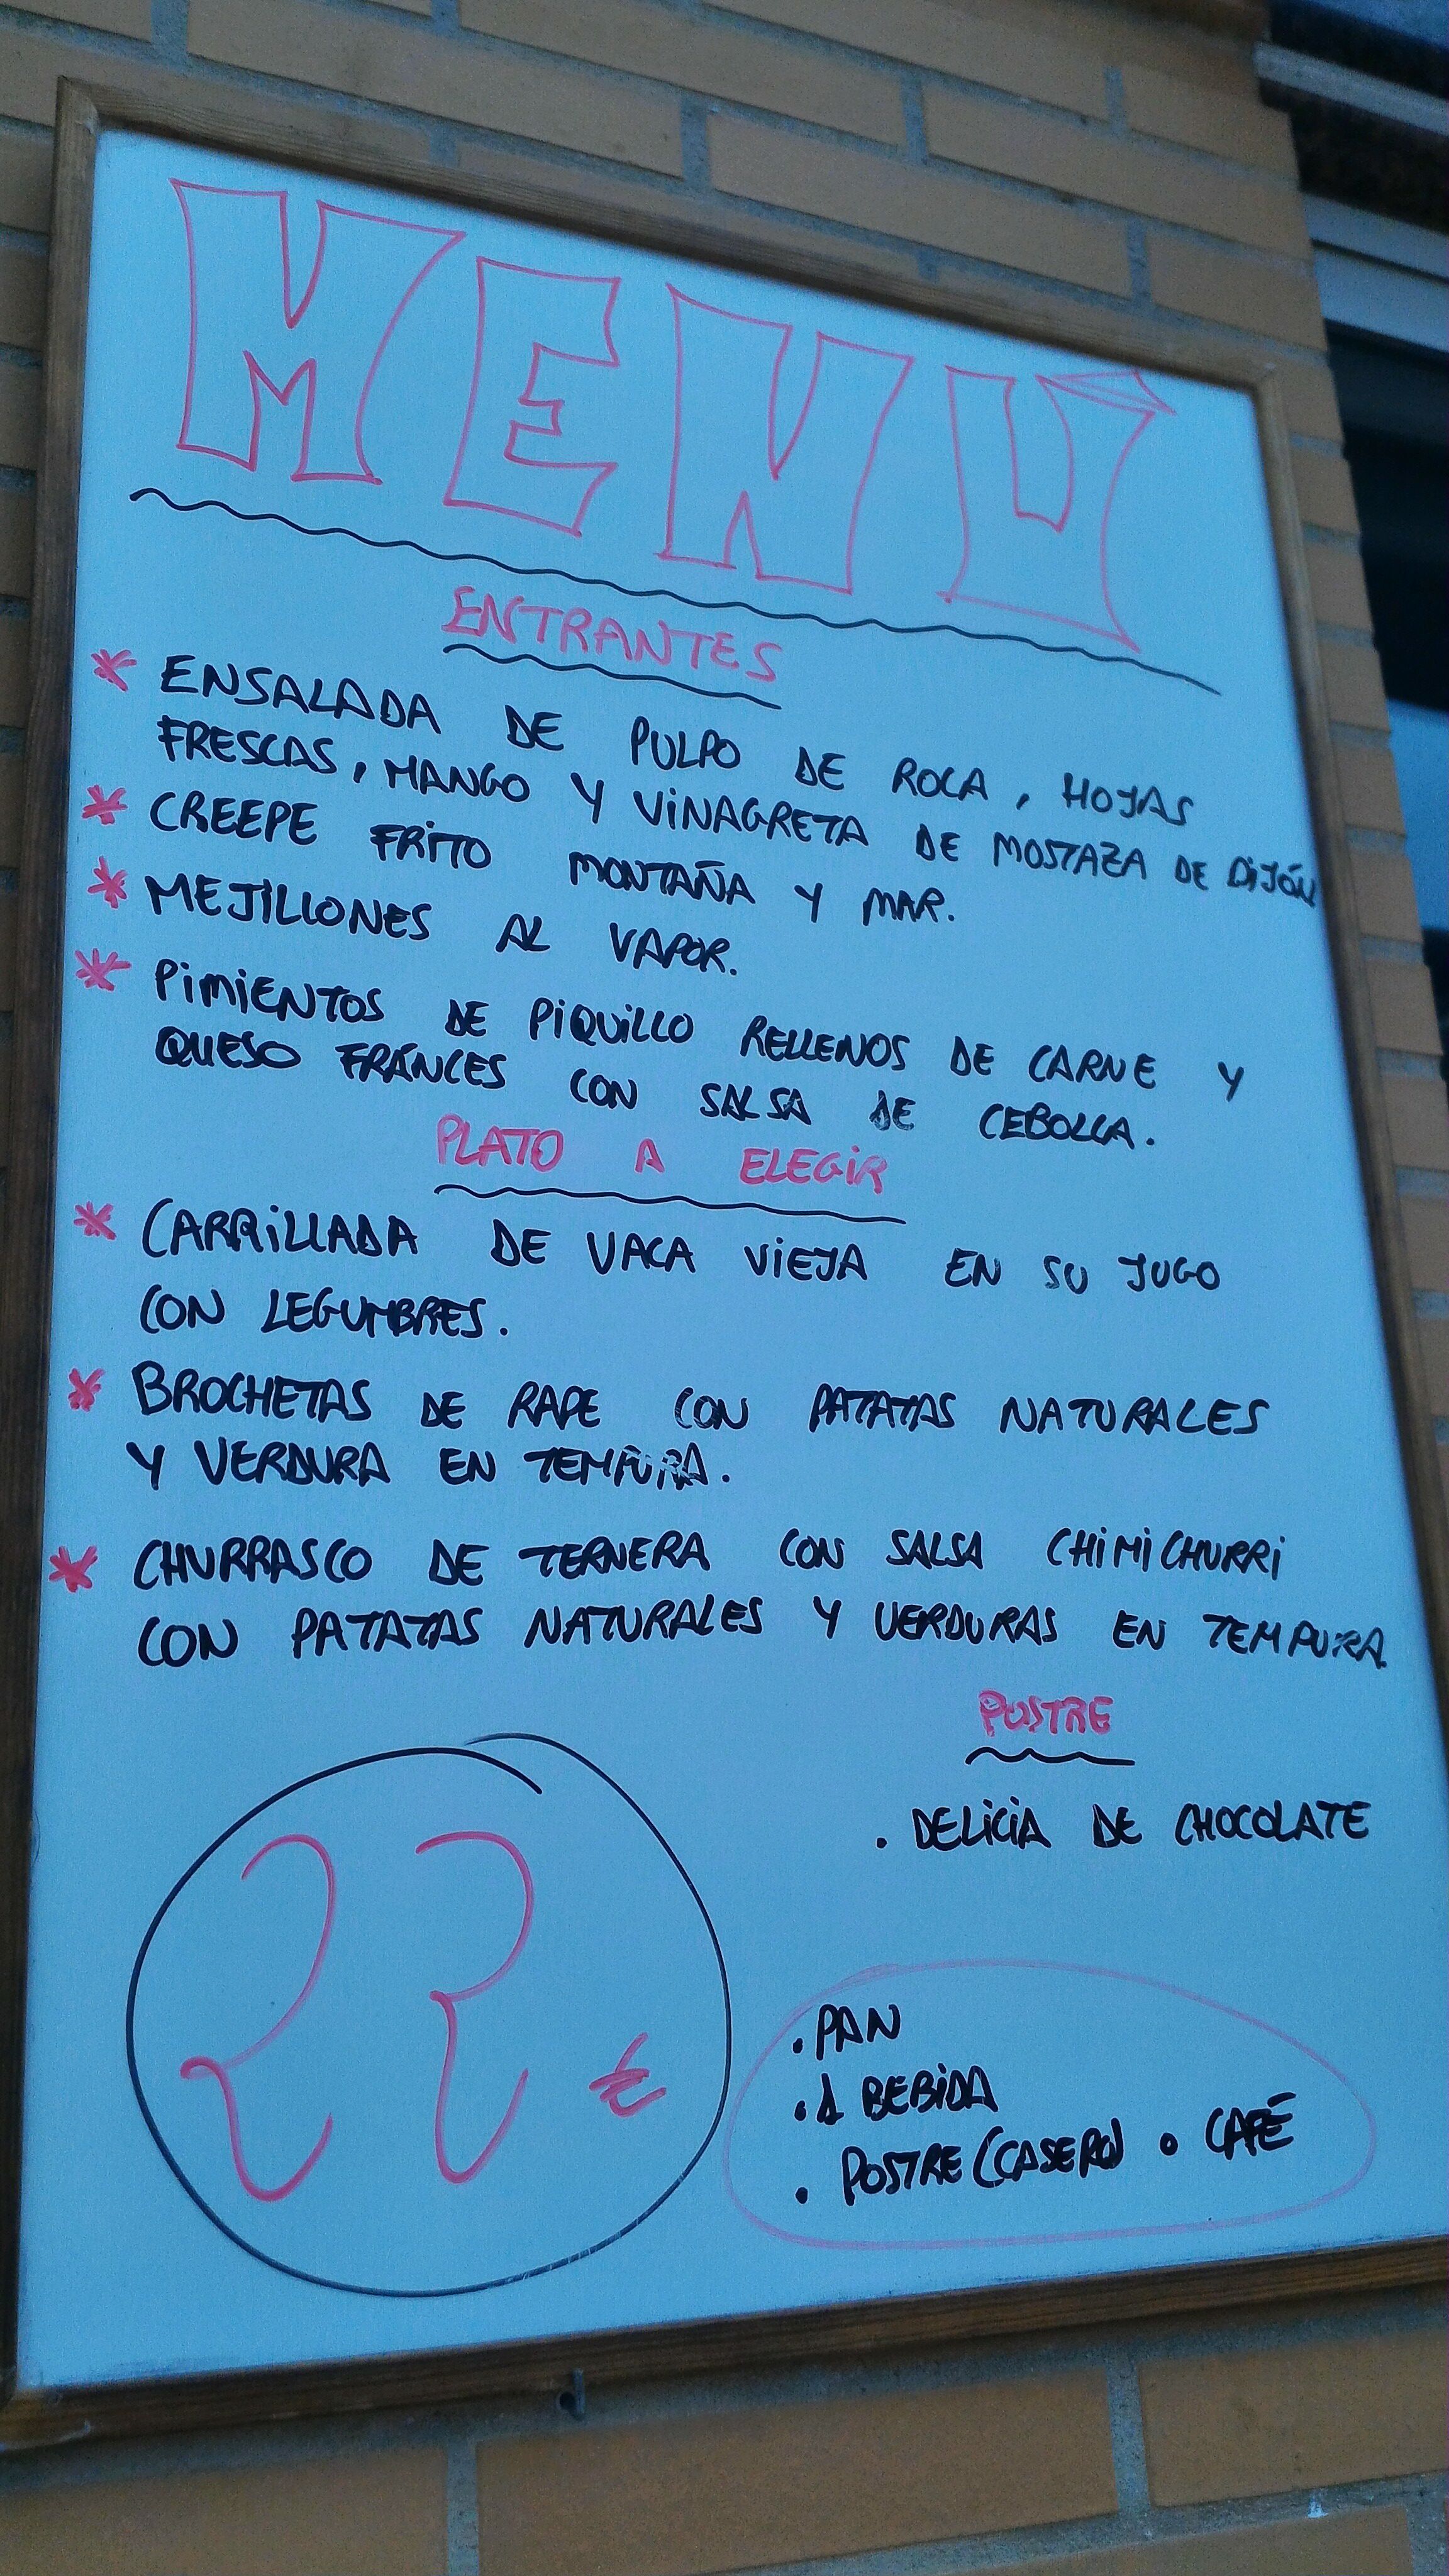 MENÚ
ENTRANTES
* ENSALADA DE PULPO DE ROCA, HOJAS
FRESCAS, MANGO Y VINAGRETA DE MOSTAZA DE DIJÓN
* CREEPE FRITO MONTAÑA Y MAR.
* MEJILLONES AL VAPOR.
* PIMIENTOS DE PIQUILLO RELLENOS DE CARNE Y
QUESO FRANCES CON SALSA DE CEBOLLA.
PLATO A ELEGIR
* CARRILLADA DE VACA VIEJA EN SU JUGO
CON LEGUMBRES.
* BROCHETAS DE RAPE CON PATATAS NATURALES
Y VERDURA EN TEMPURA.
* CHURRASCO DE TERNERA CON SALSA CHIMICHURRI
CON PATATAS NATURALES Y VERDURAS EN TEMPURA.
POSTRE
. DELICIA DE CHOCOLATE
22 €
. PAN
. 1 BEBIDA
. POSTRE (CASERO) O CAFÉ